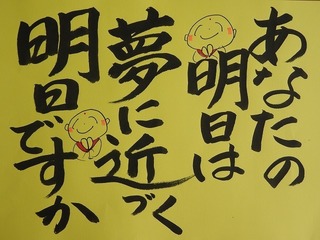 あなたの
明日は
夢に近づく
明日ですか